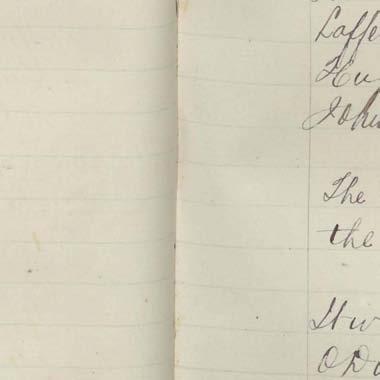 Laffe
Hu
John
The
the
It w